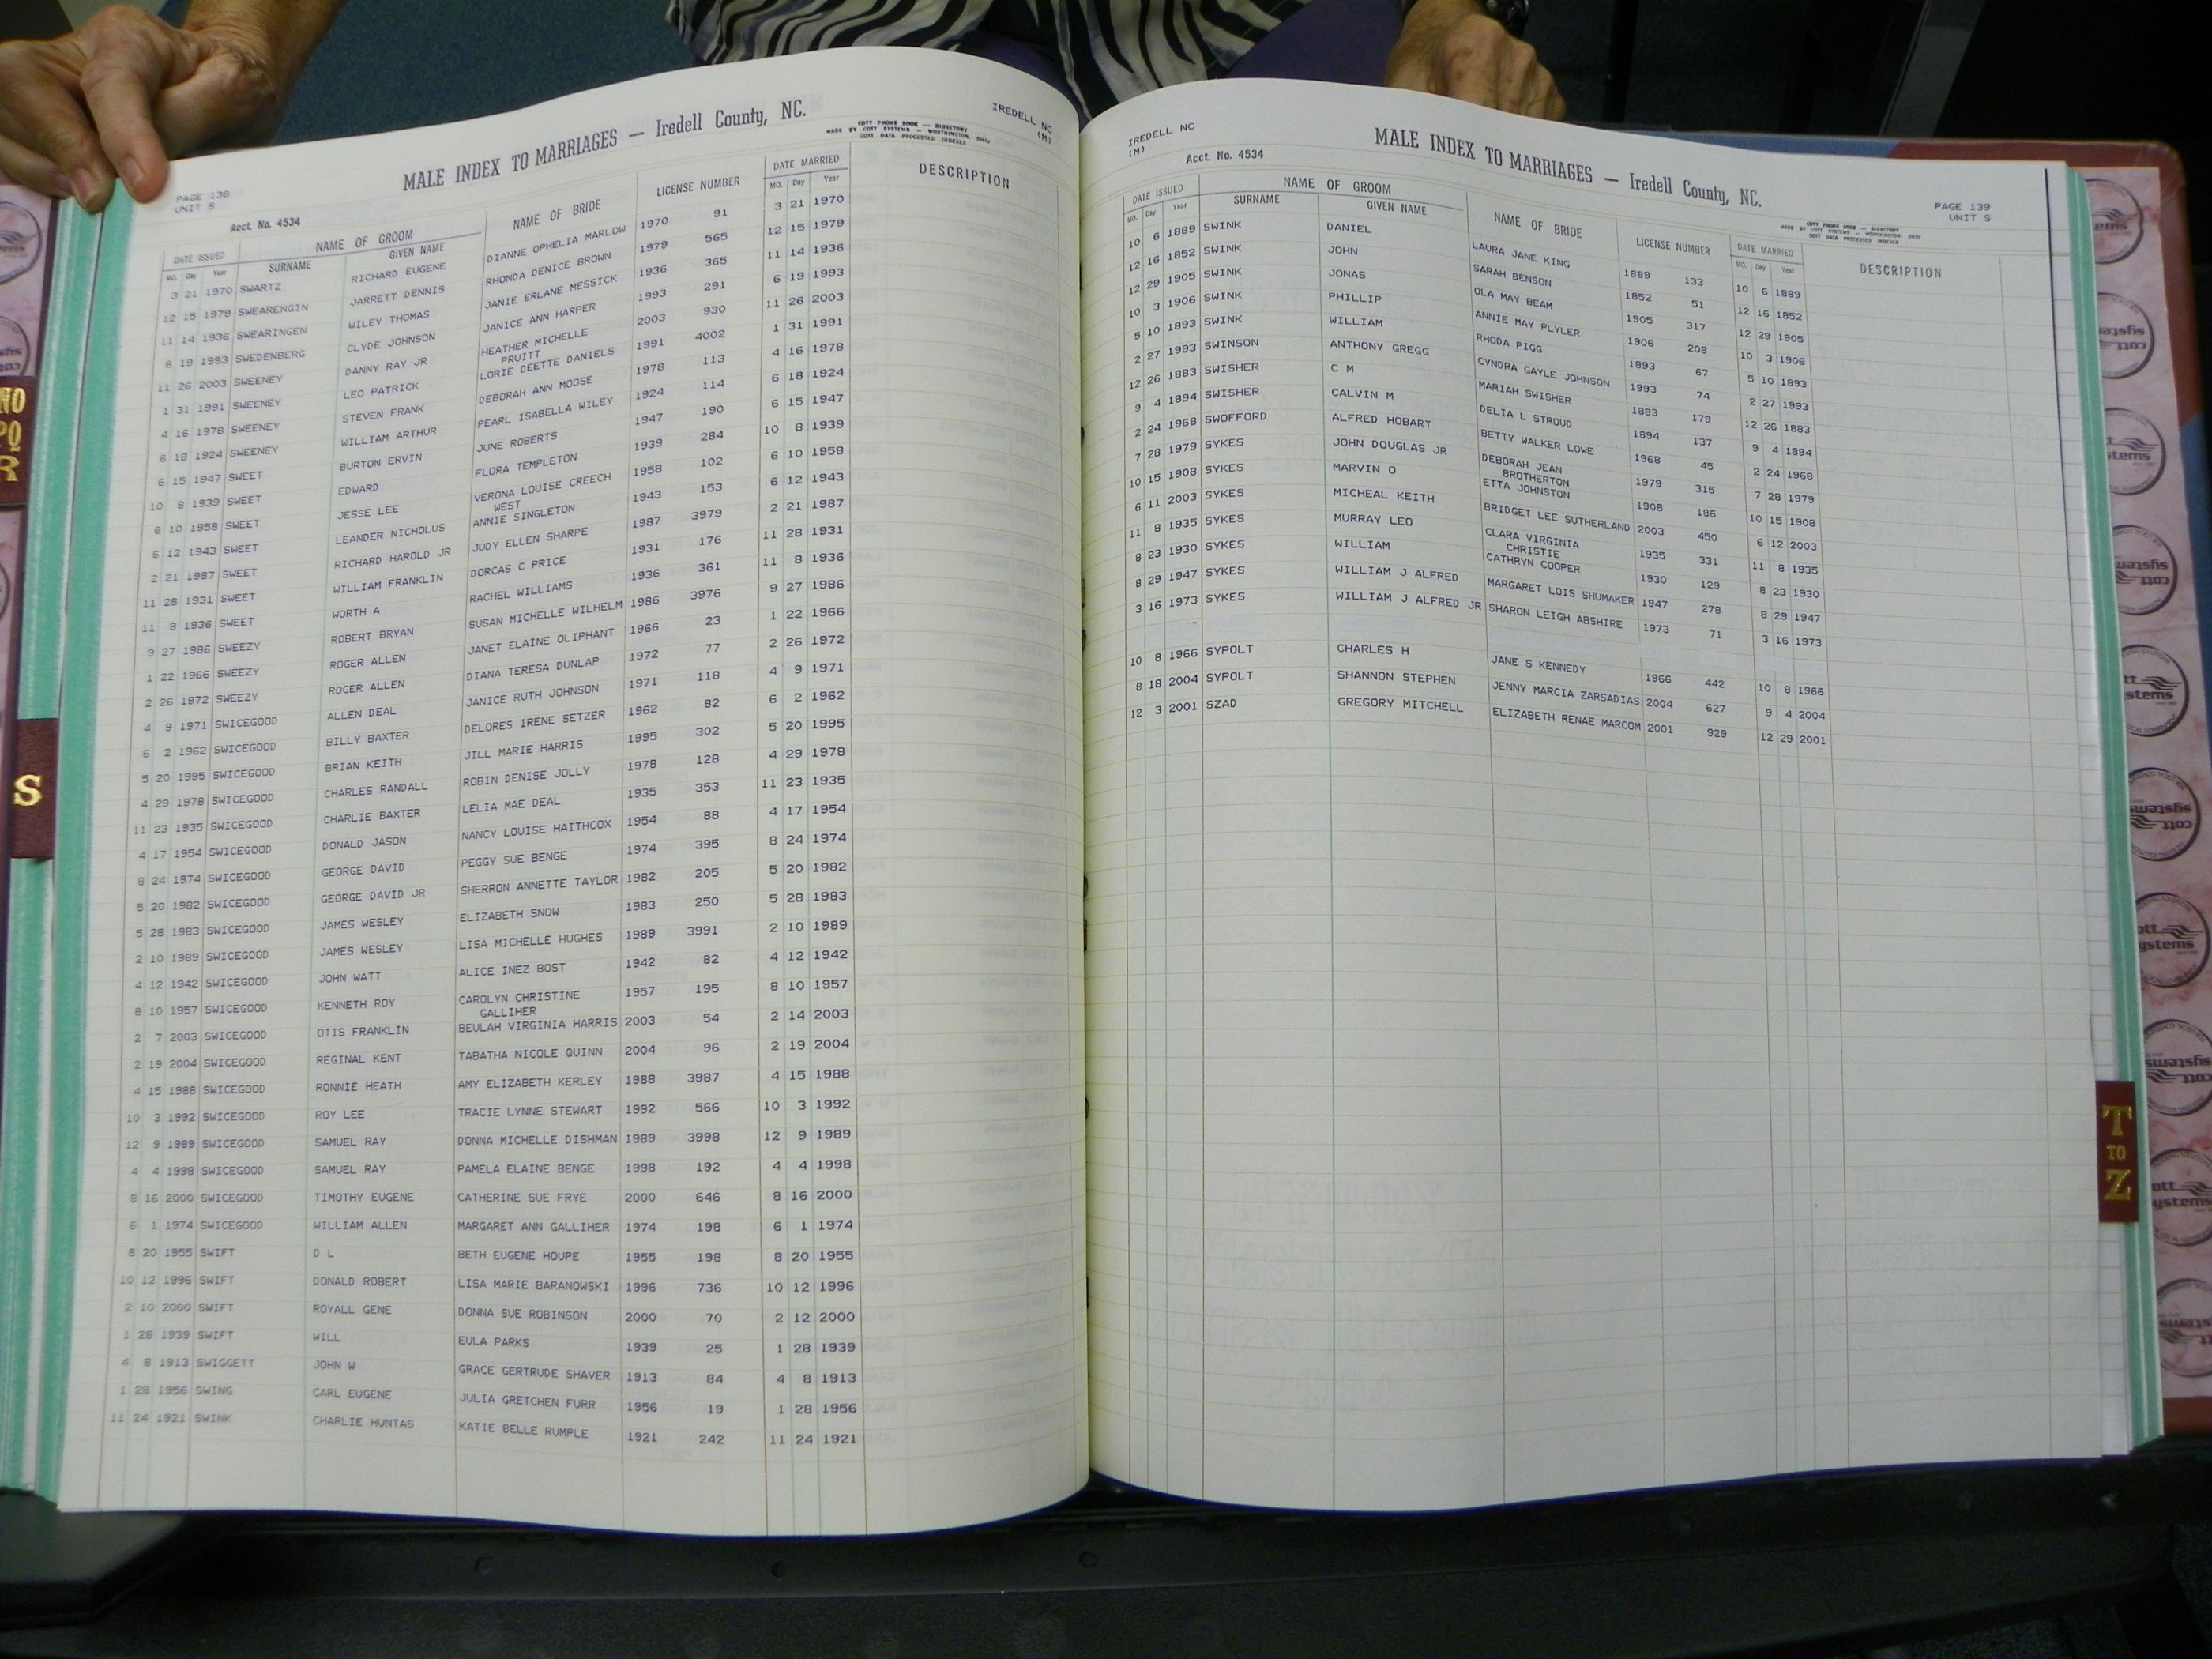 PAGE 138
UNIT S
MALE INDEX TO MARRIAGES — Iredell County, NC.
COTT PHONE BOOK — DIRECTORY
MADE BY COTT SYSTEMS — WORTHINGTON, OHIO
COTT DATA PROCESSED INDEXES
IREDELL NC
(M)
Acct. No. 4534
DATE ISSUED NAME OF GROOM NAME OF BRIDE LICENSE NUMBER DATE MARRIED DESCRIPTION
MO. Day Year SURNAME GIVEN NAME MO. Day Year
3 21 1970 SWARTZ RICHARD EUGENE DIANNE OPHELIA MARLOW 1970 91 3 21 1970
12 15 1979 SWEARENGIN JARRETT DENNIS RHONDA DENICE BROWN 1979 565 12 15 1979
11 14 1936 SWEARINGEN WILEY THOMAS JANIE ERLANE MESSICK 1936 365 11 14 1936
6 19 1993 SWEDENBERG CLYDE JOHNSON JANICE ANN HARPER 1993 291 6 19 1993
11 26 2003 SWEENEY DANNY RAY JR HEATHER MICHELLE 2003 930 11 26 2003
PRUITT
1 31 1991 SWEENEY LEO PATRICK LORIE DEETTE DANIELS 1991 4002 1 31 1991
4 16 1978 SWEENEY STEVEN FRANK DEBORAH ANN MOOSE 1978 113 4 16 1978
6 18 1924 SWEENEY WILLIAM ARTHUR PEARL ISABELLA WILEY 1924 114 6 18 1924
6 15 1947 SWEET BURTON ERVIN JUNE ROBERTS 1947 190 6 15 1947
10 8 1939 SWEET EDWARD FLORA TEMPLETON 1939 284 10 8 1939
6 10 1958 SWEET JESSE LEE VERONA LOUISE CREECH 1958 102 6 10 1958
WEST
6 12 1943 SWEET LEANDER NICHOLUS ANNIE SINGLETON 1943 153 6 12 1943
2 21 1987 SWEET RICHARD HAROLD JR JUDY ELLEN SHARPE 1987 3979 2 21 1987
11 28 1931 SWEET WILLIAM FRANKLIN DORCAS C PRICE 1931 176 11 28 1931
11 8 1936 SWEET WORTH A RACHEL WILLIAMS 1936 361 11 8 1936
9 27 1986 SWEEZY ROBERT BRYAN SUSAN MICHELLE WILHELM 1986 3976 9 27 1986
1 22 1966 SWEEZY ROGER ALLEN JANET ELAINE OLIPHANT 1966 23 1 22 1966
2 26 1972 SWEEZY ROGER ALLEN DIANA TERESA DUNLAP 1972 77 2 26 1972
4 9 1971 SWICEGOOD ALLEN DEAL JANICE RUTH JOHNSON 1971 118 4 9 1971
6 2 1962 SWICEGOOD BILLY BAXTER DELORES IRENE SETZER 1962 82 6 2 1962
5 20 1995 SWICEGOOD BRIAN KEITH JILL MARIE HARRIS 1995 302 5 20 1995
4 29 1978 SWICEGOOD CHARLES RANDALL ROBIN DENISE JOLLY 1978 128 4 29 1978
11 23 1935 SWICEGOOD CHARLIE BAXTER LELIA MAE DEAL 1935 353 11 23 1935
4 17 1954 SWICEGOOD DONALD JASON NANCY LOUISE HAITHCOX 1954 88 4 17 1954
8 24 1974 SWICEGOOD GEORGE DAVID PEGGY SUE BENGE 1974 395 8 24 1974
5 20 1982 SWICEGOOD GEORGE DAVID JR SHERRON ANNETTE TAYLOR 1982 205 5 20 1982
5 28 1983 SWICEGOOD JAMES WESLEY ELIZABETH SNOW 1983 250 5 28 1983
2 10 1989 SWICEGOOD JAMES WESLEY LISA MICHELLE HUGHES 1989 3991 2 10 1989
4 12 1942 SWICEGOOD JOHN WATT ALICE INEZ BOST 1942 82 4 12 1942
8 10 1957 SWICEGOOD KENNETH ROY CAROLYN CHRISTINE 1957 195 8 10 1957
GALLIHER
2 7 2003 SWICEGOOD OTIS FRANKLIN BEULAH VIRGINIA HARRIS 2003 54 2 14 2003
2 19 2004 SWICEGOOD REGINAL KENT TABATHA NICOLE QUINN 2004 96 2 19 2004
4 15 1988 SWICEGOOD RONNIE HEATH AMY ELIZABETH KERLEY 1988 3987 4 15 1988
10 3 1992 SWICEGOOD ROY LEE TRACIE LYNNE STEWART 1992 566 10 3 1992
12 9 1989 SWICEGOOD SAMUEL RAY DONNA MICHELLE DISHMAN 1989 3998 12 9 1989
4 4 1998 SWICEGOOD SAMUEL RAY PAMELA ELAINE BENGE 1998 192 4 4 1998
8 16 2000 SWICEGOOD TIMOTHY EUGENE CATHERINE SUE FRYE 2000 646 8 16 2000
6 1 1974 SWICEGOOD WILLIAM ALLEN MARGARET ANN GALLIHER 1974 198 6 1 1974
8 20 1955 SWIFT D L BETH EUGENE HOUPE 1955 198 8 20 1955
10 12 1996 SWIFT DONALD ROBERT LISA MARIE BARANOWSKI 1996 736 10 12 1996
2 10 2000 SWIFT ROYALL GENE DONNA SUE ROBINSON 2000 70 2 12 2000
1 28 1939 SWIFT WILL EULA PARKS 1939 25 1 28 1939
4 8 1913 SWIGGETT JOHN W GRACE GERTRUDE SHAVER 1913 84 4 8 1913
1 28 1956 SWING CARL EUGENE JULIA GRETCHEN FURR 1956 19 1 28 1956
11 24 1921 SWINK CHARLIE HUNTAS KATIE BELLE RUMPLE 1921 242 11 24 1921
IREDELL NC
(M)
Acct. No. 4534
MALE INDEX TO MARRIAGES — Iredell County, NC.
PAGE 139
UNIT S
COTT PHONE BOOK — DIRECTORY
MADE BY COTT SYSTEMS — WORTHINGTON, OHIO
COTT DATA PROCESSED INDEXES
DATE ISSUED NAME OF GROOM NAME OF BRIDE LICENSE NUMBER DATE MARRIED DESCRIPTION
MO. Day Year SURNAME GIVEN NAME MO. Day Year
10 6 1889 SWINK DANIEL LAURA JANE KING 1889 133 10 6 1889
12 16 1852 SWINK JOHN SARAH BENSON 1852 51 12 16 1852
12 29 1905 SWINK JONAS OLA MAY BEAM 1905 317 12 29 1905
10 3 1906 SWINK PHILLIP ANNIE MAY PLYLER 1906 208 10 3 1906
5 10 1893 SWINK WILLIAM RHODA PIGG 1893 67 5 10 1893
2 27 1993 SWINSON ANTHONY GREGG CYNDRA GAYLE JOHNSON 1993 74 2 27 1993
12 26 1883 SWISHER C M MARIAH SWISHER 1883 179 12 26 1883
9 4 1894 SWISHER CALVIN M DELIA L STROUD 1894 137 9 4 1894
2 24 1968 SWOFFORD ALFRED HOBART BETTY WALKER LOWE 1968 45 2 24 1968
7 28 1979 SYKES JOHN DOUGLAS JR DEBORAH JEAN 1979 315 7 28 1979
BROTHERTON
10 15 1908 SYKES MARVIN O ETTA JOHNSTON 1908 186 10 15 1908
6 11 2003 SYKES MICHEAL KEITH BRIDGET LEE SUTHERLAND 2003 450 6 12 2003
11 8 1935 SYKES MURRAY LEO CLARA VIRGINIA 1935 331 11 8 1935
CHRISTIE
8 23 1930 SYKES WILLIAM CATHRYN COOPER 1930 129 8 23 1930
8 29 1947 SYKES WILLIAM J ALFRED MARGARET LOIS SHUMAKER 1947 278 8 29 1947
3 16 1973 SYKES WILLIAM J ALFRED JR SHARON LEIGH ABSHIRE 1973 71 3 16 1973
10 8 1966 SYPOLT CHARLES H JANE S KENNEDY 1966 442 10 8 1966
8 18 2004 SYPOLT SHANNON STEPHEN JENNY MARCIA ZARSADIAS 2004 627 9 4 2004
12 3 2001 SZAD GREGORY MITCHELL ELIZABETH RENAE MARCOM 2001 929 12 29 2001
NO
PQ
R
S
T
TO
Z
cott
systems